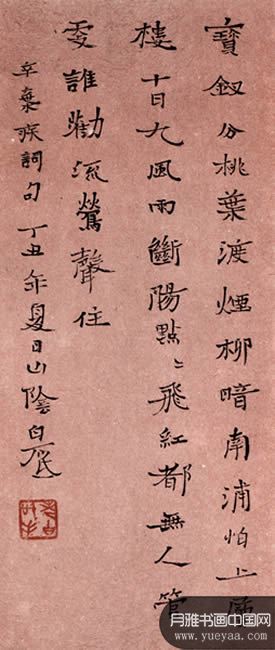 寶釵分桃葉渡煙柳暗南浦怕上層
樓十日九風雨斷腸點〻飛紅都無人管
更誰勸流鶯聲住
辛棄疾詞句 丁丑年夏日山陰白砥
月雅书画中国网
www.yueyaa.com